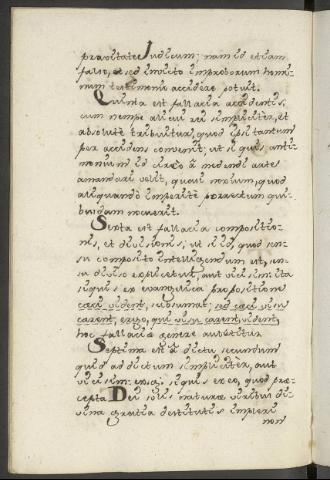 pravitatem Judicum; nam id etiam
falso, et sed invicto improborum homi-
num testimonio accidere potuit.
Quinta est fallacia accidentis,
cum nempe alicui rei simpliciter, et
absolute tribuitur, quod ipsi tantum
per accidens convenit; ut si quis anti-
monium id circo à medendi arte
amandare velit, quasi noxium, quod
aliquando imperite porrectum qui-
busdam nocuerit.
Sexta est fallacia compositio-
nis, et divisionis; ut si id, quod sen-
su composito intelligendum est, sen-
su diviso explicetur, aut vicissim: ita
siquis ex evangelica propositione
caeci vident, subsumat; sed caeci visu
carent, ergo, qui visu carent, vident,
hoc fallaciae genere abutitur
Septima est à dicto secundum
quid ad dictum simpliciter, aut
vicissim: si quis ex eo, quod prae-
cepta Dei solis naturae viribus di-
vina gratia destitutus implere
non